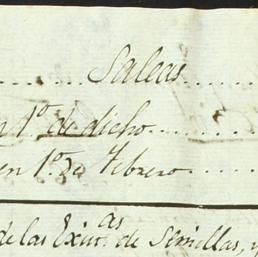 Saleas
n 1º de dicho
en 1º de Febrero
de las Exiv.as de Semillas, y